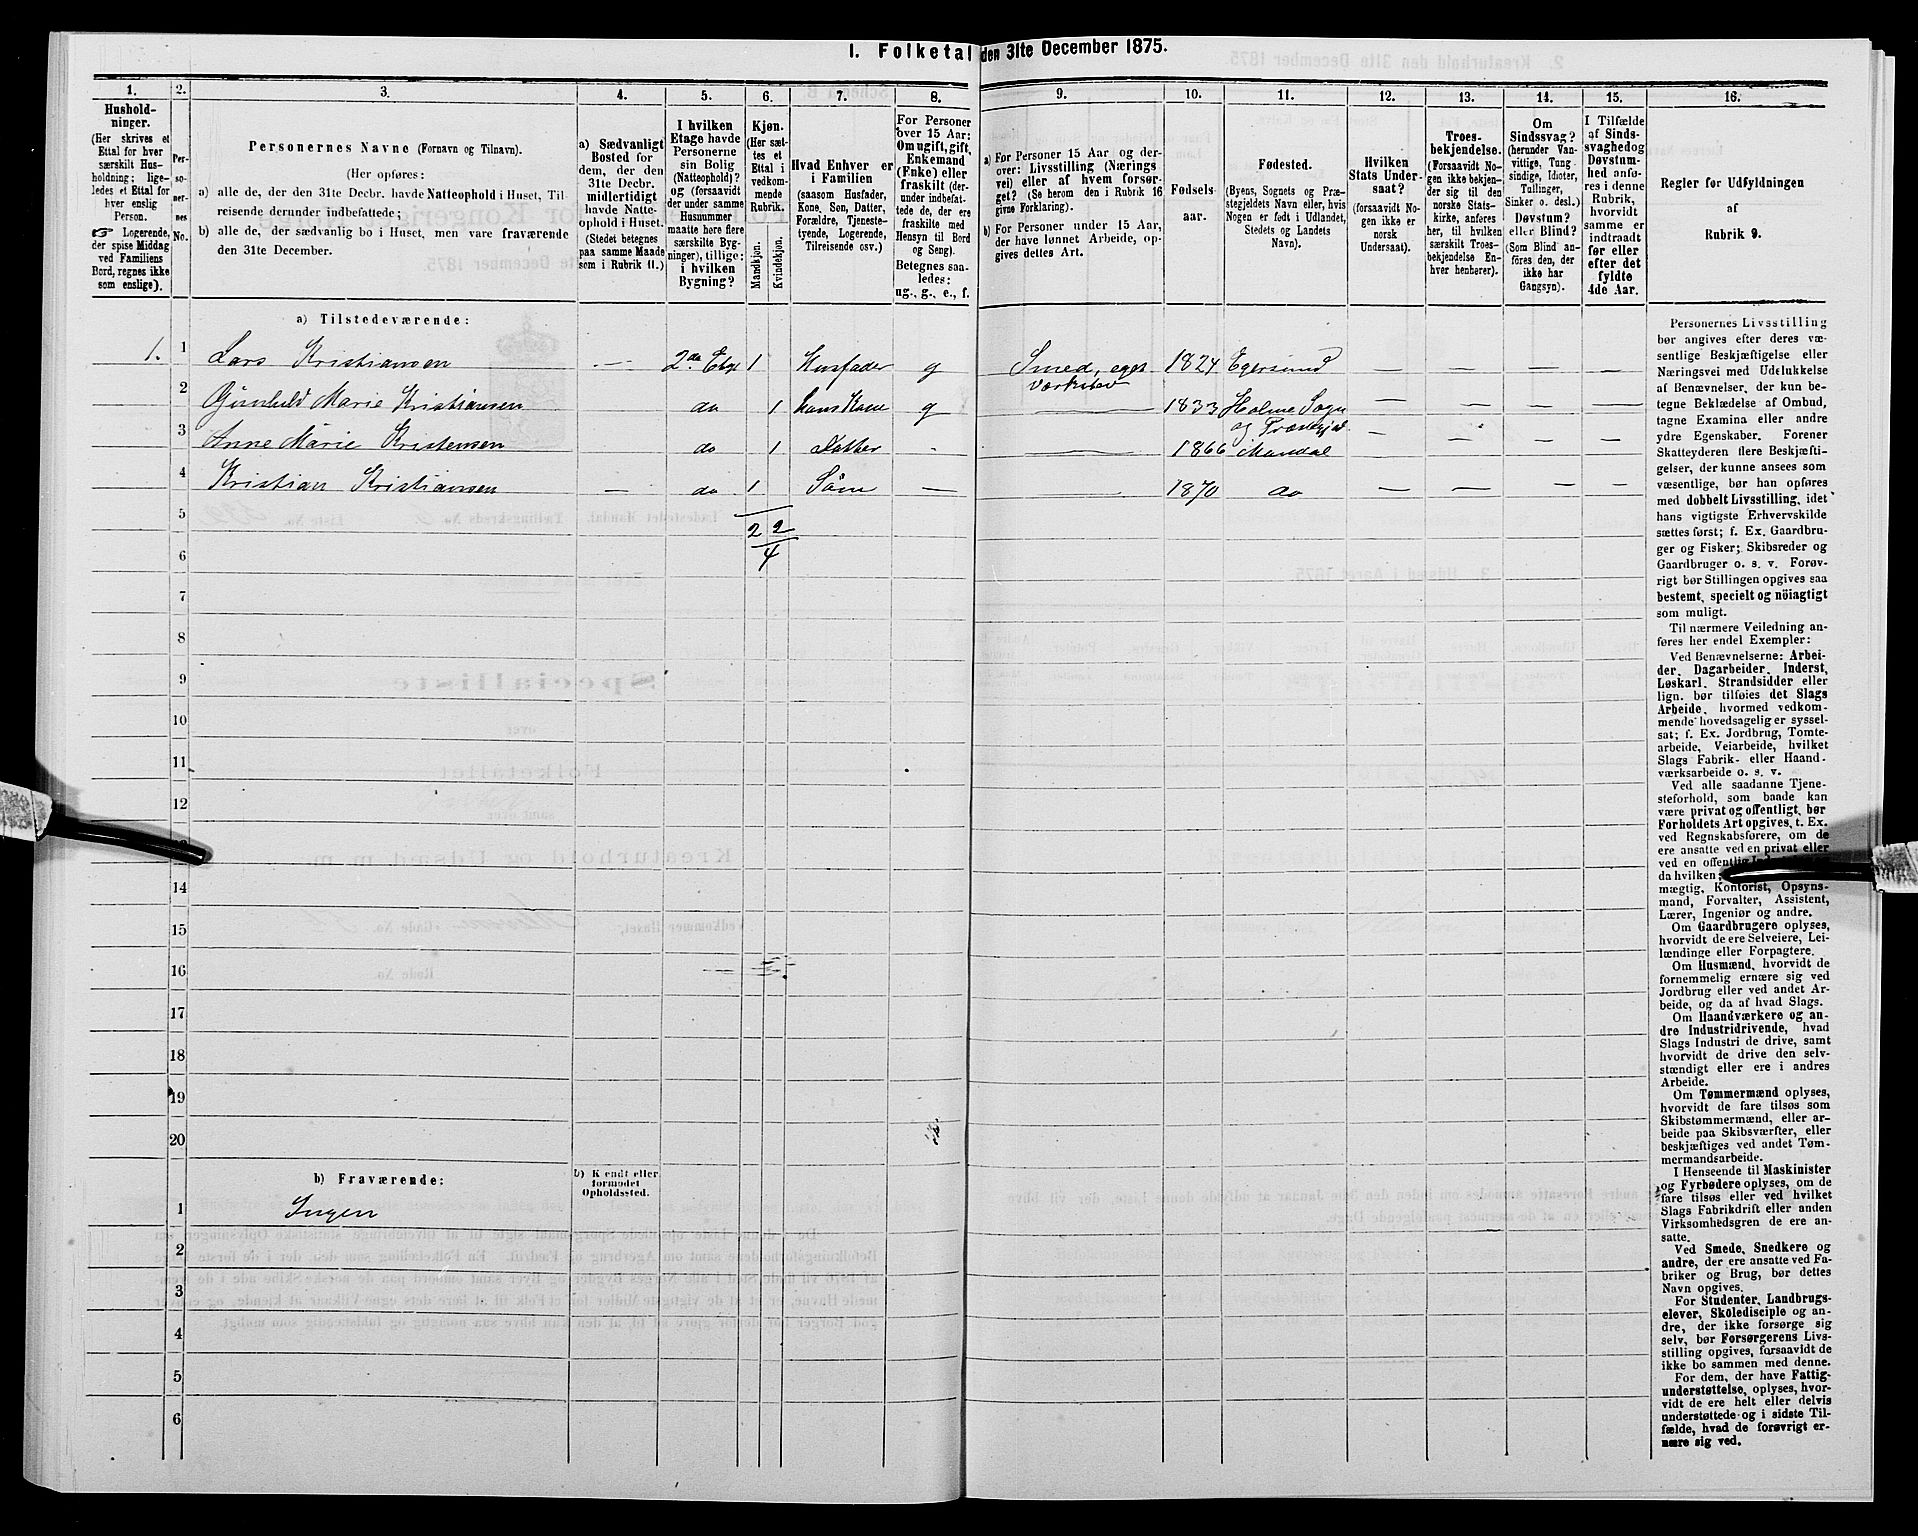 1. Folketal den 31te December 1875.
1.
Hushold-
ninger.
(Her skrives et
Ettal for hver
særskilt Hus-
holdning; lige-
ledes et Ettal for
hver enslig
Person.
☞ Logerende,
der spise Middag
ved Familiens
Bord, regnes ikke
som enslige).
2.
Per-
so-
ner-
nes
No.
3.
Personernes Navne (Fornavn og Tilnavn).
(Her opføres:
a) alle de, der den 31te Decbr. havde Natteophold i Huset, Til-
reisende derunder indbefattede;
b) alle de, der sædvanlig bo i Huset, men vare fraværende
den 31te December.
4.
a) Sædvanligt
Bosted for
dem, der den
31te Decbr.
midlertidigt
havde Natte-
ophold i Huset.
(Stedet betegnes
paa samme Maade
som i Rubrik 11.)
5.
I hvilken
Etage havde
Personerne
sin Bolig
(Natteophold)?
og (forsaavidt
der under samme
Husnummer
maatte høre flere
særskilte Byg-
ninger), tillige:
i hvilken
Bygning?
6.
Kjøn.
(Her sæt-
tes et
Ettal i
vedkom-
mende
Rubrik.
Mandkjøn.
Kvindekjøn.
7.
Hvad Enhver er
i Familien
(saasom Husfader,
Kone, Søn, Datter,
Forældre, Tjeneste-
tyende, Logerende,
Tilreisende osv.)
8.
For Personer
over 15 Aar:
Om ugift, gift,
Enkemand
(Enke) eller
fraskilt (der-
under indbefat-
tede de, der ere
fraskilte med
Hensyn til Bord
og Seng).
Betegnes saa-
ledes:
ug., g., e., f.
9.
a) For Personer 15 Aar og der-
over: Livsstilling (Nærings-
vei) eller af hvem forsør-
get? (Se herom den i Rubrik 16
givne Forklaring).
b) For Personer under 15 Aar,
der have lønnet Arbeide, op-
gives dettes Art.
10.
Fødsels-
aar.
11.
Fødested.
(Byens, Sognets og Præ-
stegjeldets Navn eller, hvis
Nogen er født i Udlandet,
Stedets og Landets
Navn).
12.
Hvilken
Stats Under-
saat?
(forsaavidt No-
gen ikke er
norsk
Undersaat).
13.
Troes-
bekjendelse.
(Forsaavidt No-
gen ikke bekjen-
der sig til den
norske Stats-
kirke, anføres
her, til hvilken
særskilt Troes-
bekjendelse En-
hver henhører).
14.
Om
Sindssvag?
(herunder Van-
vittige, Tung-
sindige, Idioter,
Tullinger,
Sinker o. desl.)
Døvstum?
eller Blind?
(Som Blind an-
føres den, der
ikke har
Gangsyn).
15.
I Tilfælde
af Sinds-
svaghed og
Døvstum-
hed anfø-
res i denne
Rubrik,
hvorvidt
samme er
indtraadt
før eller
efter det
fyldte
4de Aar.
16.
Regler for Udfyldningen
af
Rubrik 9.
a) Tilstedeværende:
1. 1 Lars Kristiansen — 2den Etge 1 Husfader g Smed, eget Værksted 1824 Egersund — — — —
2 Gunhild Marie Kristiansen do 1 hans Kone g — 1833 Holme Sogn og Præstegjd. — — — —
3 Anne Marie Kristensen do 1 Datter - — 1866 Mandal — — — —
4 Kristian Kristiansen — do 1 Søn — — 1870 do — — — —
5 2 2
6 4
7
8
9
10
11
12
14
15
16
17
18
19
20
b) Fraværende:
b) Kjendt eller
formodet
Opholdssted.
1 Ingen
2
3
4
5
6
Personernes Livsstilling
bør angives efter deres væ-
sentlige Beskjæftigelse eller
Næringsvei med Udelukkelse
af Benævnelser, der kun be-
tegne Beklædelse af Ombud,
tagne Examina eller andre
ydre Egenskaber. Forener
Skatteyderen flere Beskjæfti-
gelser, der kunne ansees som
væsentlige, bør han opføres
med dobbelt Livsstilling, idet
hans vigtigste Erhvervskilde
sættes først; f. Ex. Gaardbru-
ger og Fisker; Skibsreder og
Gaardbruger o. s. v. Forøv-
rigt bør Stillingen opgives saa
bestemt, specielt og nøiagtigt
som muligt.
Til nærmere Veiledning an-
føres her endel Exempler:
Ved Benævnelserne: Arbei-
der, Dagarbeider, Inderst,
Løskarl, Strandsidder eller
lign. bør tilføies det Slags
Arbeide, hvormed vedkom-
mende hovedsagelig er syssel-
sat; f. Ex. Jordbrug, Tomte-
arbeide, Veiarbeide, hvilket
Slags Fabrik- eller Haand-
værksarbeide o. s. v.
Ved alle saadanne Tjene-
steforhold, som baade kan
være privat og offentligt, bør
Forholdets Art opgives, t. Ex.
ved Regnskabsførere, om de
ere ansatte ved en privat eller
ved en offentlig
da hvilken;
mægtig, Kontorist, Opsyns-
mand, Forvalter, Assistent,
Lærer, Ingeniør og andre.
Om Gaardbrugere oplyses,
hvorvidt de ere Selveiere, Lei-
lændinge eller Forpagtere.
Om Husmænd, hvorvidt de
fornemmelig ernære sig ved
Jordbrug eller ved andet Ar-
beide, og da af hvad Slags.
Om Haandværkere og an-
dre Industridrivende, hvad
Slags Industri de drive, samt
hvorvidt de drive den selv-
stændigt eller ere i andres
Arbeide.
Om Tømmermænd oplyses,
hvorvidt de fare tilsøs som
Skibstømmermænd, eller ar-
beide paa Skibsværfter, eller
beskjæftiges ved andet Tøm-
mermandsarbeide.
I Henseende til Maskinister
og Fyrbødere oplyses, om de
fare tilsøs eller ved hvilket
Slags Fabrikdrift eller anden
Virksomhedsgren de ere an-
satte.
Ved Smede, Snedkere og
andre, der ere ansatte ved Fa-
briker og Brug, bør dettes
Navn opgives.
For Studenter, Landbrugs-
elever, Skoledisciple og an-
dre, der ikke forsørge sig
selv, bør Forsørgerens Livs-
stilling opgives, forsaavidt de
ikke bo sammen med denne.
For dem, der have Fattig-
understøttelse, oplyses, hvor-
vidt de ere helt eller delvis
understøttede og i sidste Til-
fælde, hvad de forøvrigt er-
nære sig ved.